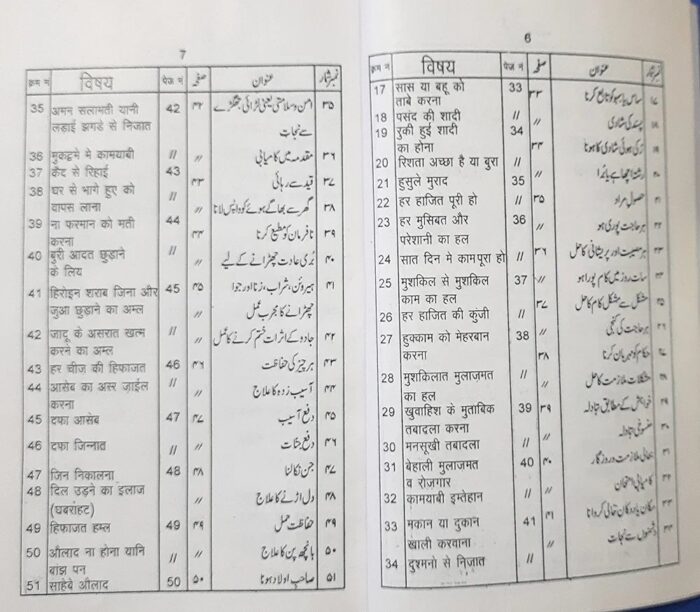 6
क्रम न विषय पेज न صفحہ عنوان نمبرشمار
17 सास या बहू को 33 ۳۳ ساس یا بہو کو تابع کرنا ۱۷
ताबे करना
18 पसंद की शादी // // پسند کی شادی ۱۸
19 रुकी हुई शादी 34 ۳۴ رُکی ہوئی شادی کا ہونا ۱۹
का होना
20 रिशता अच्छा है या बुरा // // رشتہ اچھا ہے یا بُرا ۲۰
21 हुसूले मुराद 35 ۳۵ حصول مراد ۲۱
22 हर हाजित पूरी हो // // ہر حاجت پوری ہو ۲۲
23 हर मुसिबत और 36 ۳۶ ہر مصیبت اور پریشانی کا حل ۲۳
परेशानी का हल
24 सात दिन मे काम पूरा हो // // سات روز میں کام پورا ہو ۲۴
25 मुशकिल से मुशकिल 37 ۳۷ مشکل سے مشکل کام کا حل ۲۵
काम का हल
26 हर हाजित की कुंजी // // ہر حاجت کی کنجی ۲۶
27 हुक्काम को मेहरबान 38 ۳۸ حکام کو مہربان کرنا ۲۷
करना
28 मुशकिलात मुलाज़मत // // مشکلات ملازمت کا حل ۲۸
का हल
29 खुवाहिश के मुताबिक 39 ۳۹ خواہش کے مطابق تبادلہ ۲۹
तबादला करना
30 मनसूखी तबादला // // منسوخی تبادلہ ۳۰
31 बेहाली मुलाजमत 40 ۴۰ بحالی ملازمت و روزگار ۳۱
व रोज़गार
32 कामयाबी इम्तेहान // // کامیابی امتحان ۳۲
33 मकान या दुकान 41 ۴۱ مکان یا دوکان خالی کروانا ۳۳
खाली करवाना
34 दुश्मनो से निज़ात // // دشمنوں سے نجات ۳۴
7
क्रम न विषय पेज न صفحہ عنوان نمبرشمار
35 अमन सलामती यानी 42 ۴۲ امن و سلامتی یعنی لڑائی جھگڑے ۳۵
लड़ाई झगडे से निजात سے نجات
36 मुकद्दमे मे कामयाबी // // مقدمہ میں کامیابی ۳۶
37 कैद से रिहाई 43 ۴۳ قید سے رہائی ۳۷
38 घर से भागे हुए को // // گھر سے بھاگے ہوئے کو واپس لانا ۳۸
वापस लाना
39 ना फरमान को मती 44 ۴۴ نافرمان کو مطیع کرنا ۳۹
करना
40 बुरी आदत छुडाने // // بُری عادت چھڑانے کے لیے ۴۰
के लिय
41 हिरोइन शराब जिना और 45 ۴۵ ہیروئن، شراب، زنا اور جوا ۴۱
जुआ छुडाने का अम्ल چھڑانے کا مجرب عمل
42 जादू के असरात खत्म // // جادو کے اثرات ختم کرنے کا عمل ۴۲
करने का अम्ल
43 हर चीज की हिफाजत 46 ۴۶ ہر چیز کی حفاظت ۴۳
44 आसेब का अस्र ज़ाईल // // آسیب زدہ کا علاج ۴۴
करना
45 दफा आसेब 47 ۴۷ دفع آسیب ۴۵
46 दफा जिन्नात // // دفع جنات ۴۶
47 जिन निकालना 48 ۴۸ جن نکالنا ۴۷
48 दिल उड़ने का इलाज // دل اڑنے کا علاج ۴۸
(घबराहट)
49 हिफाजत हम्ल 49 ۴۹ حفاظت حمل ۴۹
50 औलाद ना होना यानि // // بانجھ پن کا علاج ۵۰
बांझ पन
51 साहेबे औलाद 50 ۵۰ صاحب اولاد ہونا ۵۱